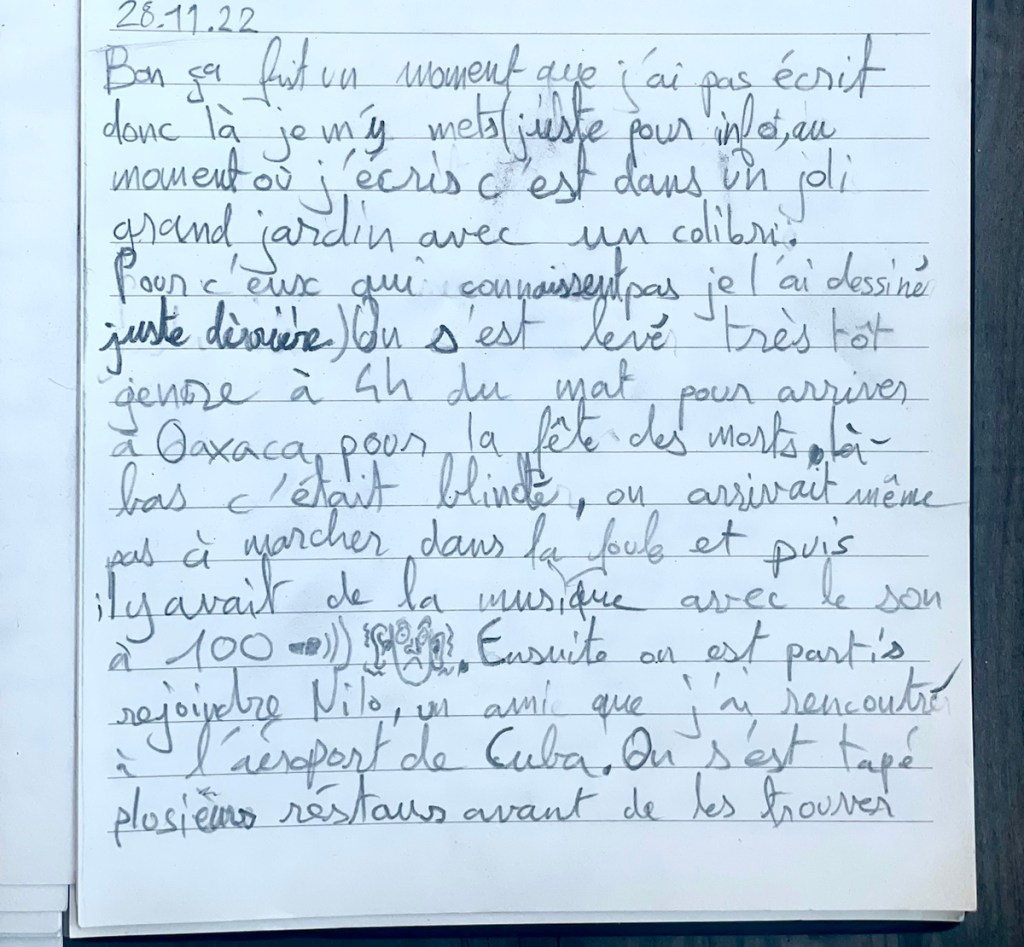 28.11.22
Bon ça fait un moment que j'ai pas écrit
donc là je m'y mets (juste pour info, au
moment où j'écris c'est dans un joli
grand jardin avec un colibri.
Pour c'eux qui connaissent pas je l'ai dessiné
juste dèrrière.) On s'est levé très tôt
genre à 4h du mat pour arriver
à Oaxaca pour la fête des morts, là-
bas c'était blindé, on arrivait même
pas à marcher dans la foule et puis
il y avait de la musique avec le son
à 100. Ensuite on est partis
rejoindre Nilo, un ami que j'ai rencontré
à l'aéroport de Cuba. On s'est tapé
plusieurs réstaus avant de les trouver